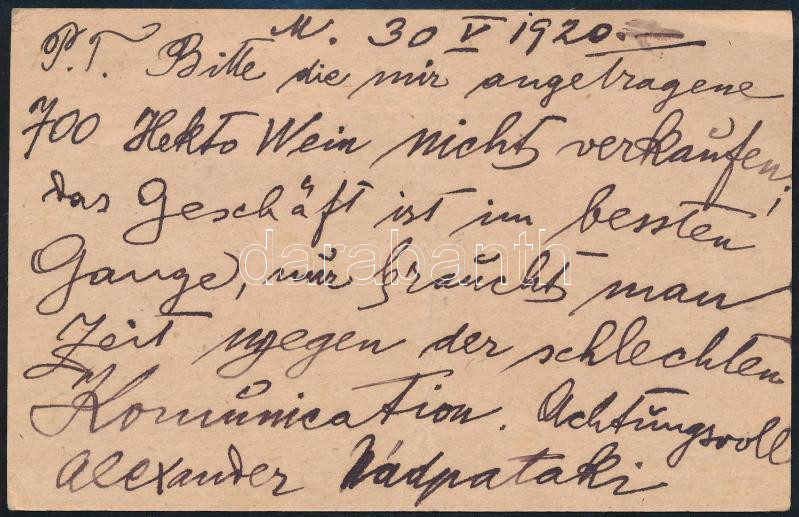 M. 30 V 1920.
P.T. Bitte die mir angetragene
700 Hekto Wein nicht verkaufen;
das Geschäft ist im bessten
Gange, nur braucht man
Zeit wegen der schlechten
Komunication. Achtungsvoll
Alexander Nádpataki
darabanth